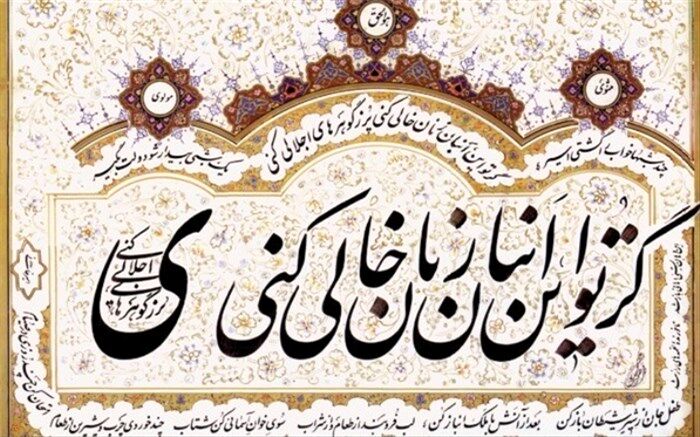 هوالحق
مثنوی
مولوی
گر تو این انبان ز نان خالی کنی پر ز گوهرهای اجلالی کنی
چند شبها خواب را گشتی اسیر
یک شبی بیدار شو دولت بگیر
گر تو این انبان ز نان خالی کنی
پر ز گوهرهای اجلالی کنی
طفل جان از شیر شیطان باز کن
بعد از آنش با ملک انباز کن
لب فروبند از طعام و از شراب
سوی خوان آسمانی کن شتاب
چند خوردی چرب و شیرین از طعام
امتحان کن چند روزی در صیام